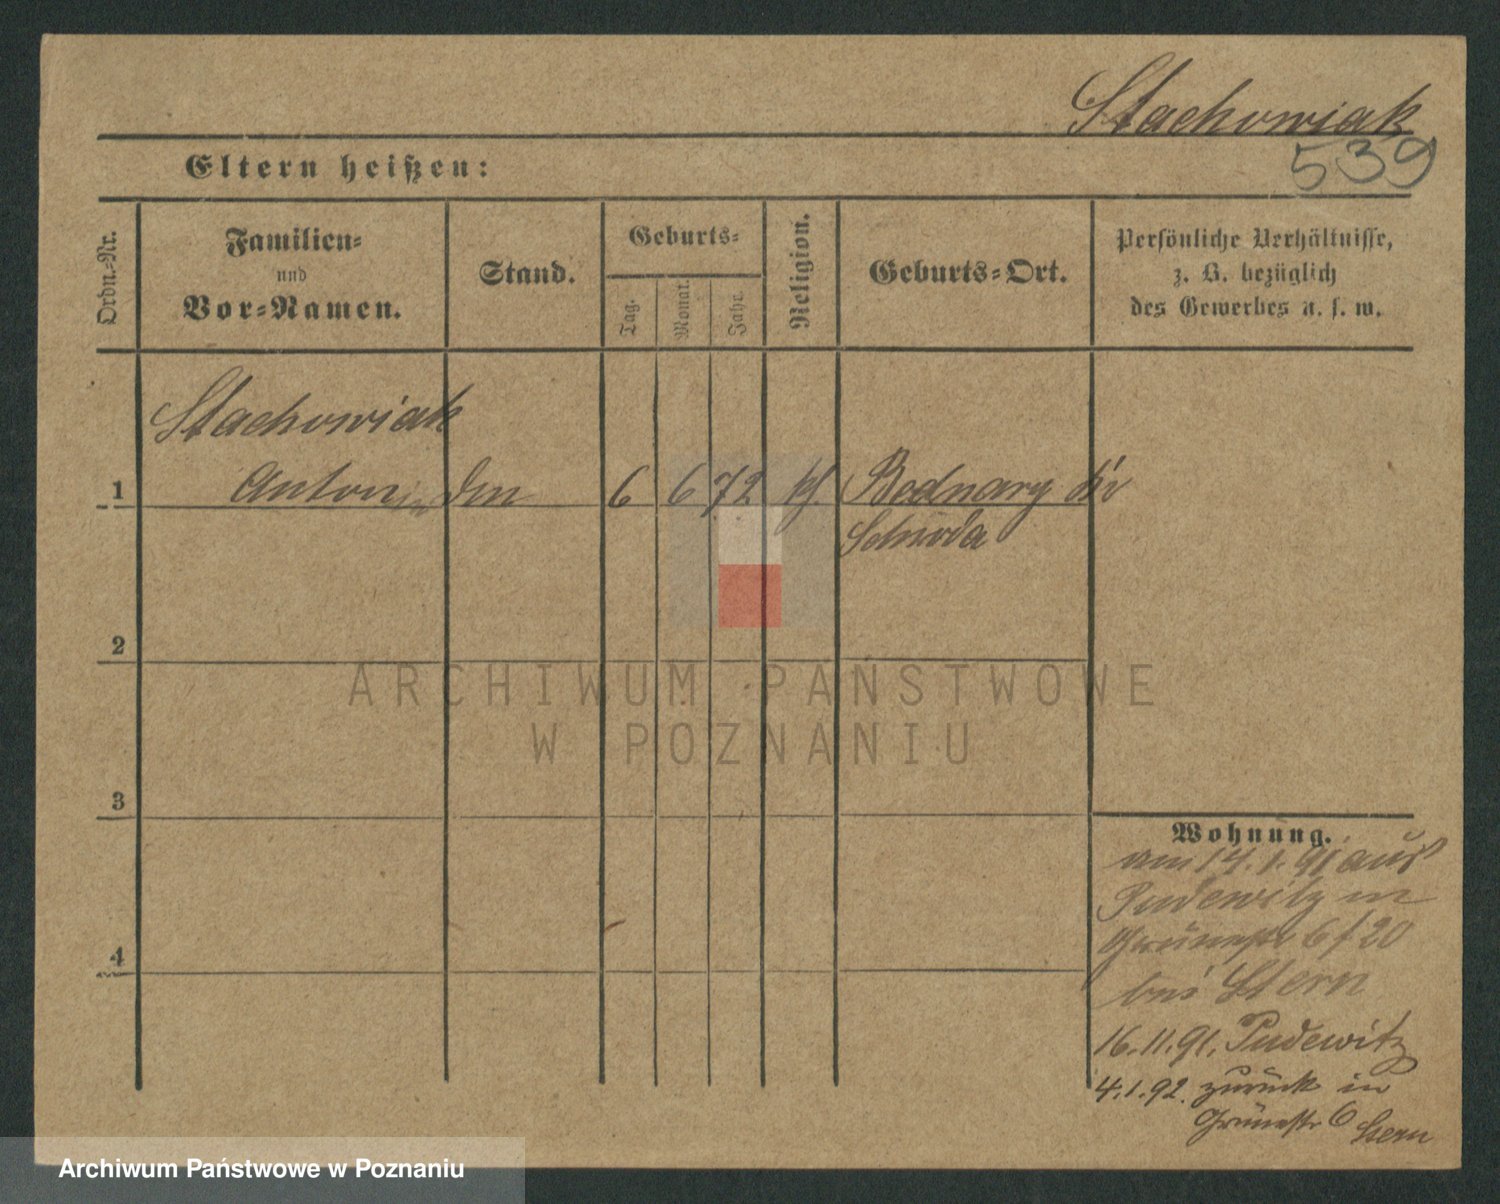 Stachowiak
539
Eltern heißen:
Ordn.-Nr.
Familien-
und
Vor-Namen.
Stand.
Geburts-
Tag.
Monat.
Jahr.
Religion.
Geburts-Ort.
Persönliche Verhältnisse,
z. B. bezüglich
des Gewerbes u. s. w.
Stachowiak
1 Anton 6 6 72 Bednary
Schroda
2
ARCHIWUM PAŃSTWOWE
W POZNANIU
3
Wohnung.
am 14.1.91 aus
Pudewitz in
Grünestr 6 / 20
bei Stern
4
16.11.91. Pudewitz
4.1.92. zurück in
Grünestr 6 Stern
Archiwum Państwowe w Poznaniu